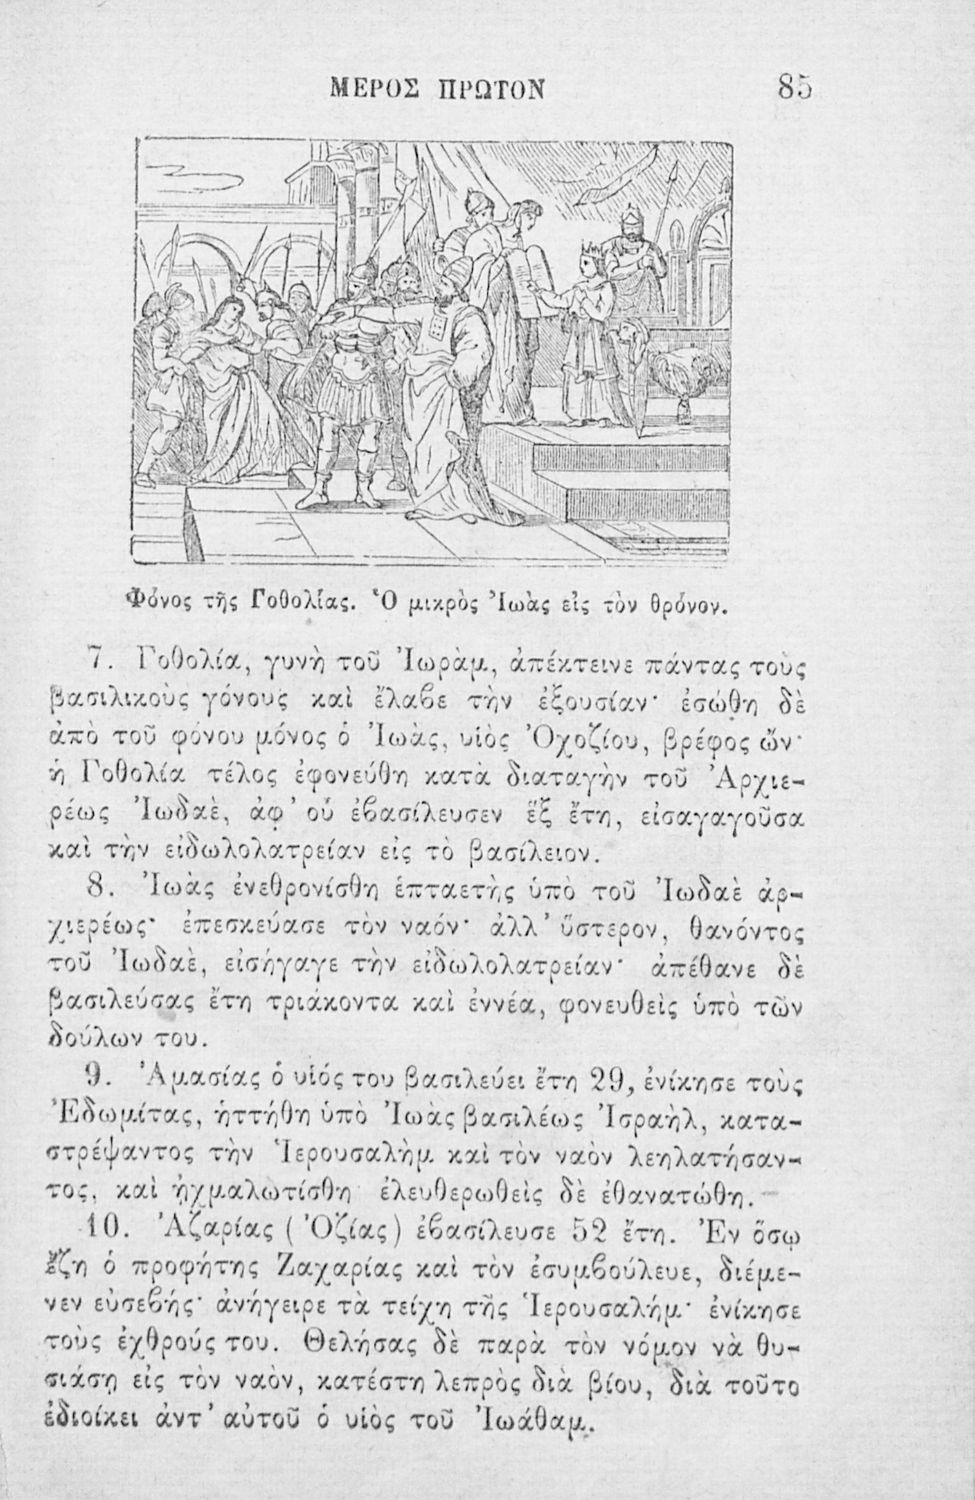 ΜΕΡΟΣ ΠΡΩΤΟΝ 85
Φόνος τῆς Γοθολίας. Ὁ μικρὸς Ἰωὰς εἰς τὸν θρόνον.
7. Γοθολία, γυνὴ τοῦ Ἰωρὰμ, ἀπέκτεινε πάντας τοὺς
βασιλικοὺς γόνους καὶ ἔλαβε τὴν ἐξουσίαν· ἐσώθη δὲ
ἀπὸ τοῦ φόνου μόνος ὁ Ἰωὰς, υἱὸς Ὀχοζίου, βρέφος ὤν·
ἡ Γοθολία τέλος ἐφονεύθη κατὰ διαταγὴν τοῦ Ἀρχιε-
ρέως Ἰωδαὲ, ἀφ' οὗ ἐβασίλευσεν ἓξ ἔτη, εἰσαγαγοῦσα
καὶ τὴν εἰδωλολατρείαν εἰς τὸ βασίλειον.
8. Ἰωὰς ἐνεθρονίσθη ἑπταετὴς ὑπὸ τοῦ Ἰωδαὲ ἀρ-
χιερέως· ἐπεσκεύασε τὸν ναόν· ἀλλ' ὕστερον, θανόντος
τοῦ Ἰωδαὲ, εἰσήγαγε τὴν εἰδωλολατρείαν· ἀπέθανε δὲ
βασιλεύσας ἔτη τριάκοντα καὶ ἐννέα, φονευθεὶς ὑπὸ τῶν
δούλων του.
9. Ἀμασίας ὁ υἱός του βασιλεύει ἔτη 29, ἐνίκησε τοὺς
Ἐδωμίτας, ἡττήθη ὑπὸ Ἰωὰς βασιλέως Ἰσραὴλ, κατα-
στρέψαντος τὴν Ἱερουσαλὴμ καὶ τὸν ναὸν λεηλατήσαν-
τος, καὶ ᾐχμαλωτίσθη· ἐλευθερωθεὶς δὲ ἐθανατώθη.
10. Ἀζαρίας (Ὀζίας) ἐβασίλευσε 52 ἔτη. Ἐν ὅσῳ
ἔζη ὁ προφήτης Ζαχαρίας καὶ τὸν ἐσυμβούλευε, διέμε-
νεν εὐσεβής· ἀνήγειρε τὰ τείχη τῆς Ἱερουσαλήμ· ἐνίκησε
τοὺς ἐχθρούς του. Θελήσας δὲ παρὰ τὸν νόμον νὰ θυ-
σιάσῃ εἰς τὸν ναὸν, κατέστη λεπρὸς διὰ βίου, διὰ τοῦτο
ἐδιοίκει ἀντ' αὐτοῦ ὁ υἱὸς τοῦ Ἰωάθαμ.